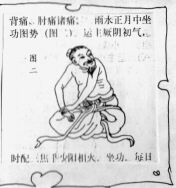 背痛、肘痛诸痛。 雨水正月中坐
功图势（图 ）。运主厥阴初气，
图
二
时配三焦手少阳相火。坐功，每日